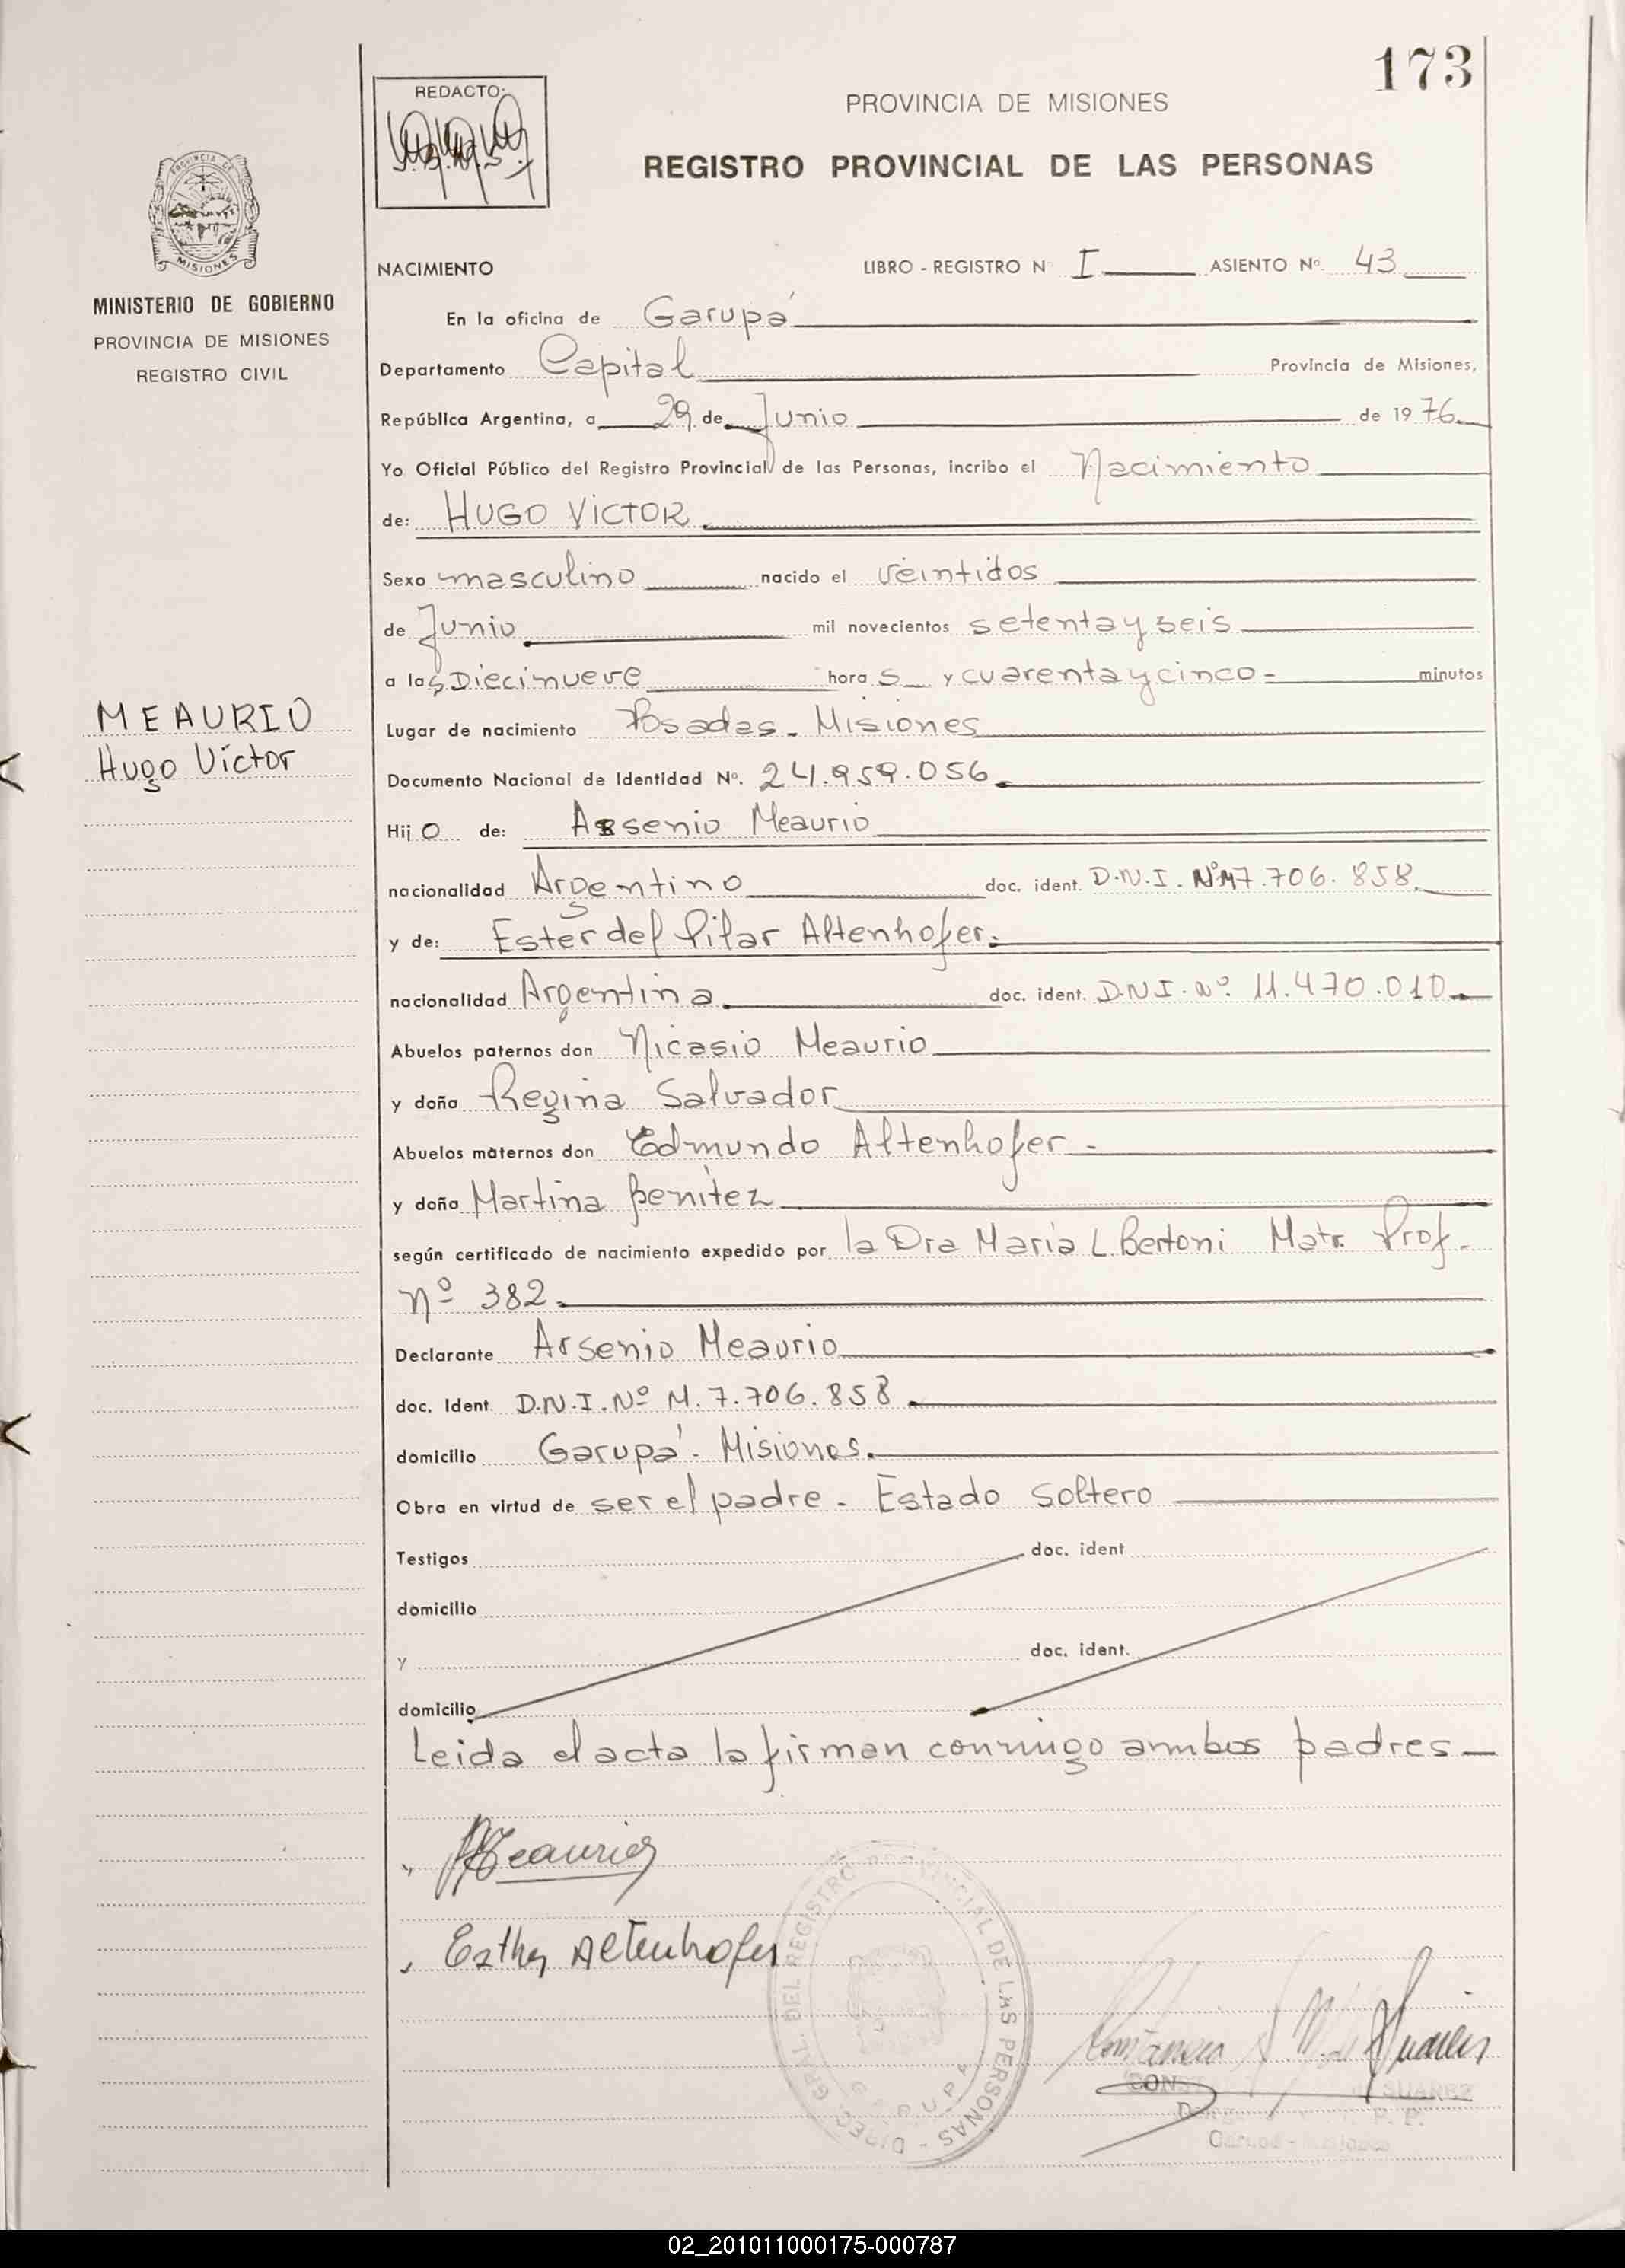 173
REDACTO:
PROVINCIA DE MISIONES
REGISTRO PROVINCIAL DE LAS PERSONAS
PROVINCIA DE
MISIONES
MINISTERIO DE GOBIERNO
PROVINCIA DE MISIONES
REGISTRO CIVIL
NACIMIENTO LIBRO - REGISTRO Nº I ASIENTO Nº. 43
En la oficina de Garupá
Departamento Capital Provincia de Misiones,
República Argentina, a 29 de Junio de 1976
Yo Oficial Público del Registro Provincial de las Personas, incribo el Nacimiento
de: HUGO VICTOR
Sexo masculino nacido el veintidos
de Junio mil novecientos setenta y seis
a las Diecinueve horas y cuarenta y cinco = minutos
MEAURIO
Hugo Víctor
Lugar de nacimiento Posadas - Misiones
Documento Nacional de Identidad Nº. 24.959.056
Hijo de: Arsenio Meaurio
nacionalidad Argentino doc. ident. D.N.I. Nº M7.706.858
y de: Ester del Pilar Altenhofer.
nacionalidad Argentina doc. ident. D.N.I. Nº. 11.470.010
Abuelos paternos don Nicasio Meaurio
y doña Regina Salvador
Abuelos maternos don Edmundo Altenhofer -
y doña Martina Benítez
según certificado de nacimiento expedido por la Dra María L. Bertoni Matr. Prof.
nº 382.
Declarante Arsenio Meaurio
doc. Ident. D.N.I. Nº M. 7.706.858
domicilio Garupá - Misiones.
Obra en virtud de ser el padre - Estado soltero
Testigos doc. ident
domicilio
y doc. ident.
domicilio
Leida el acta la firman conmigo ambos padres
Meaurio
Esther Altenhofer
DIREC. GRAL. DEL REGISTRO PROVINCIAL DE LAS PERSONAS -
GARUPA
Suarez
CONST SUAREZ
02_201011000175-000787